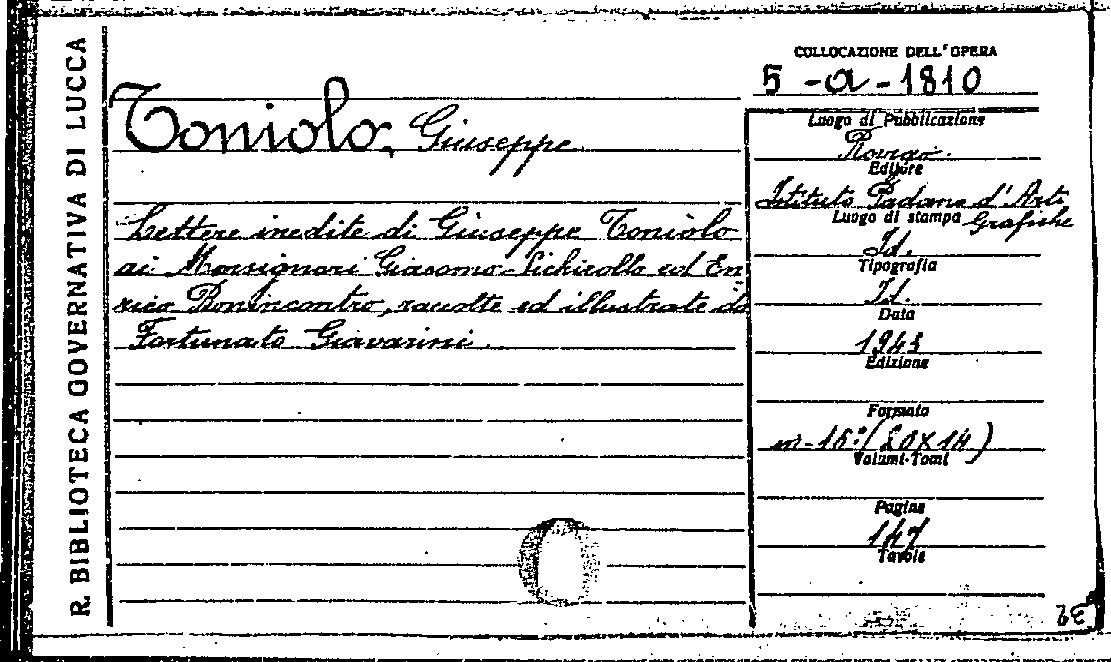 R. BIBLIOTECA GOVERNATIVA DI LUCCA
COLLOCAZIONE DELL'OPERA
5 - a - 1810
Toniolo, Giuseppe
Lettere inedite di Giuseppe Toniolo
ai Monsignori Giacomo Sichirollo ed En
rico Bonincontro, raccolte ed illustrate da
Fortunato Giavarini.
Luogo di Pubblicazione
Rovigo.
Editore
Istituto Padano d'Arti
Grafiche
Luogo di stampa
Id.
Tipografia
Id.
Data
1945
Edizione
Formato
in-16°(20x14)
Volumi-Tomi
Pagine
147
Tavole